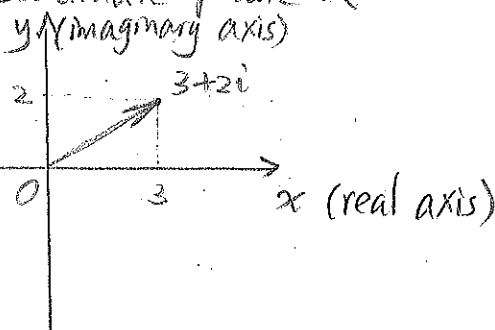 y (imaginary axis)
2
3+2i
0
3
x (real axis)